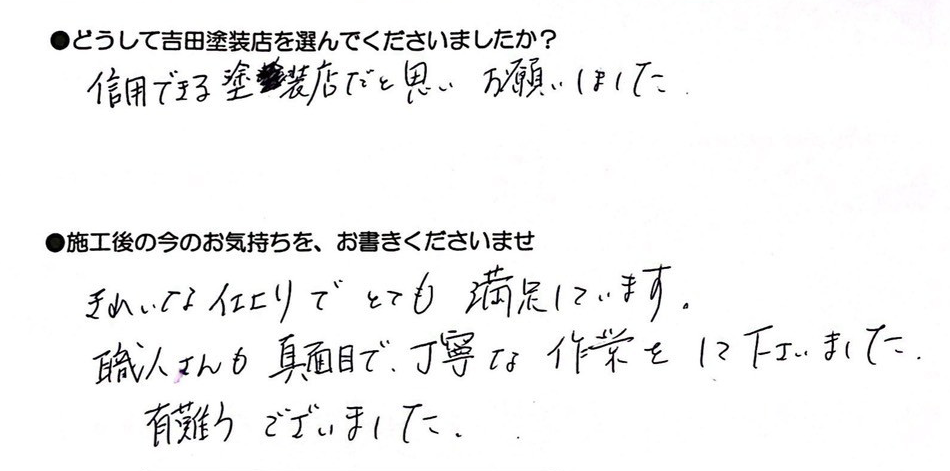 ●どうして吉田塗装店を選んでくださいましたか？
信用できる塗装店だと思い お願いしました.
●施工後の今のお気持ちを、お書きくださいませ
きれいな仕上りで とても 満足しています。
職人さんも 真面目で、丁寧な 作業を して 下さいました.
有難う ございました.